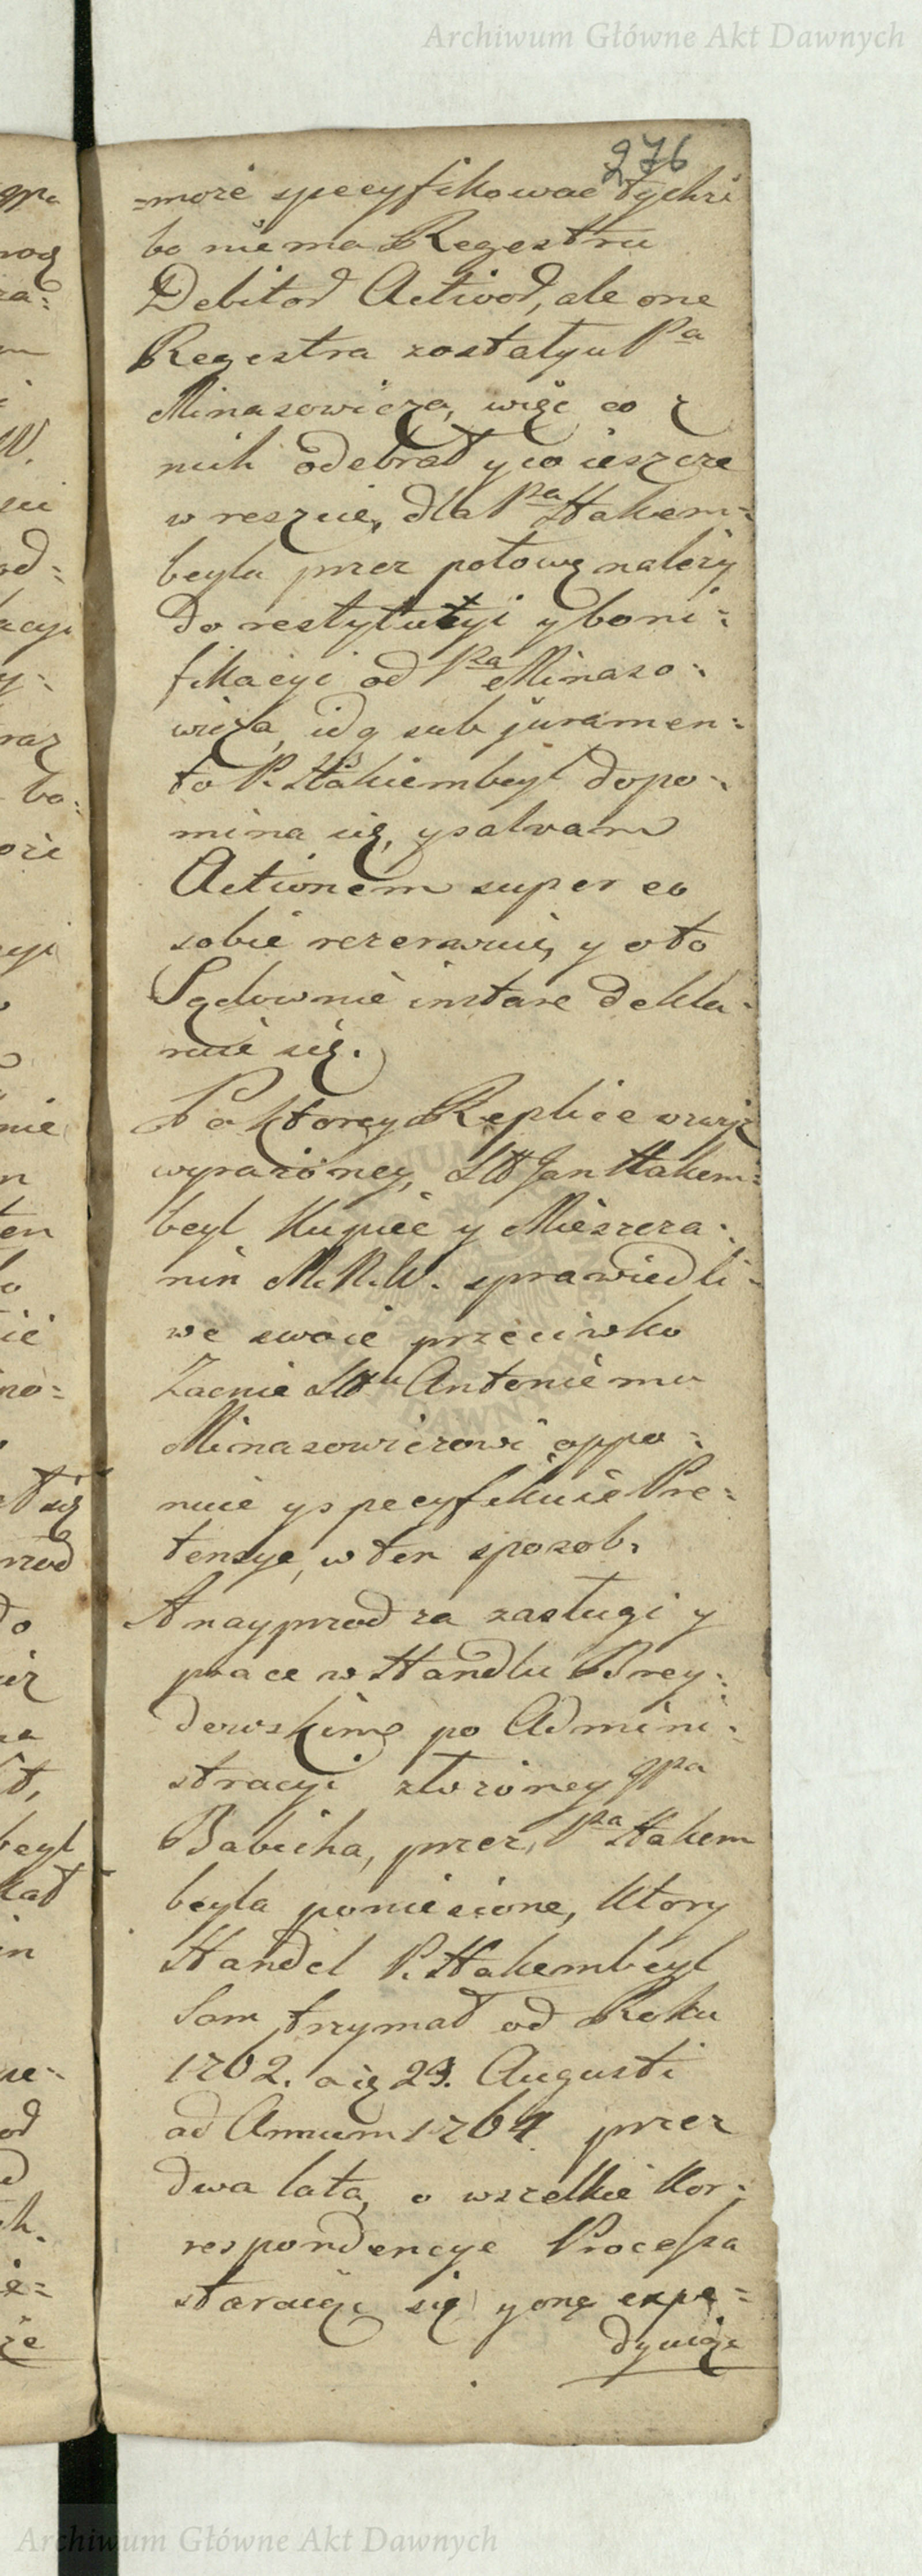 Archiwum Główne Akt Dawnych
276
=może specyfikować tychże
bo niema Regestru
Debitor̃ Activor̃, ale one
Regestra zostały u Pa
Minasowicza, więc co z
nich odebrał y co ieszcze
w reszcie, dla Pa Hakem=
beyla przez połowę należy
do restytucyi y boni=
fikacyi od Pa Minaso=
wicza, idq sub juramen=
to P. Hakiembeyl dopo=
mina się, y salvam
Actionem super eo
sobie rezerwuie, y o to
Sądownie instare dekla=
ruie się.
Po ktorey Replice wwyż
wyrażoney, Stt Jan Hakem=
beyl Kupiec y Mieszcza=
nin M.R.W. sprawiedli=
we swoie przeciwko
Zacnie Sttu Antoniemu
Minasowiczowi oppo=
nuie y specyfikuie Pre=
tensye, w ten sposob.
A nayprzod za zasługi y
prace w Handlu Brey=
derowskim po Admini=
stracyi złożoney gpa
Babicha, przez Pa Hakem
beyla poniesione, ktory
Handel P. Hakembeyl
Sam trzymał od Roku
1762. a ię 23. Augusti
ad Annum 1764 przez
dwa lata, o wszelkie Kor=
respondencye Processa
staraiąc się y onę expe=
dyuiąc
Archiwum Główne Akt Dawnych